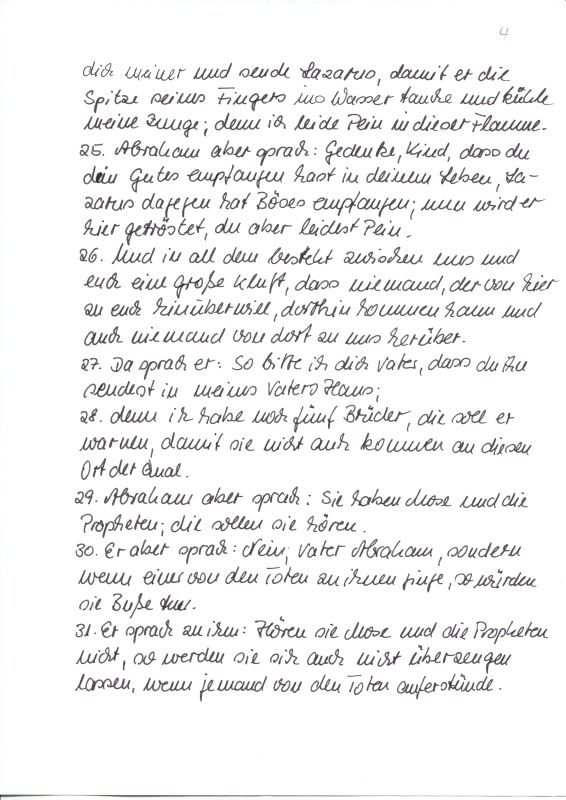 4
dich meiner und sende Lazarus, damit er die
Spitze seines Fingers ins Wasser tauche und kühle
meine Zunge; denn ich leide Pein in dieser Flamme.
25. Abraham aber sprach: Gedenke, Kind, dass du
dein Gutes empfangen hast in deinem Leben, La-
zarus dagegen hat Böses empfangen; nun wird er
hier getröstet, du aber leidest Pein.
26. Und in all dem besteht zwischen uns und
euch eine große Kluft, dass niemand, der von hier
zu euch hinüber will, dorthin kommen kann und
auch niemand von dort zu uns herüber.
27. Da sprach er: So bitte ich dich Vater, dass du ihn
sendest in meines Vaters Haus;
28. denn ich habe noch fünf Brüder, die soll er
warnen, damit sie nicht auch kommen an diesen
Ort der Qual.
29. Abraham aber sprach: Sie haben Mose und die
Propheten; die sollen sie hören.
30. Er aber sprach: Nein, Vater Abraham, sondern
wenn einer von den Toten zu ihnen ginge, so würden
sie Buße tun.
31. Er sprach zu ihm: Hören sie Mose und die Propheten
nicht, so werden sie sich auch nicht überzeugen
lassen, wenn jemand von den Toten auferstünde.